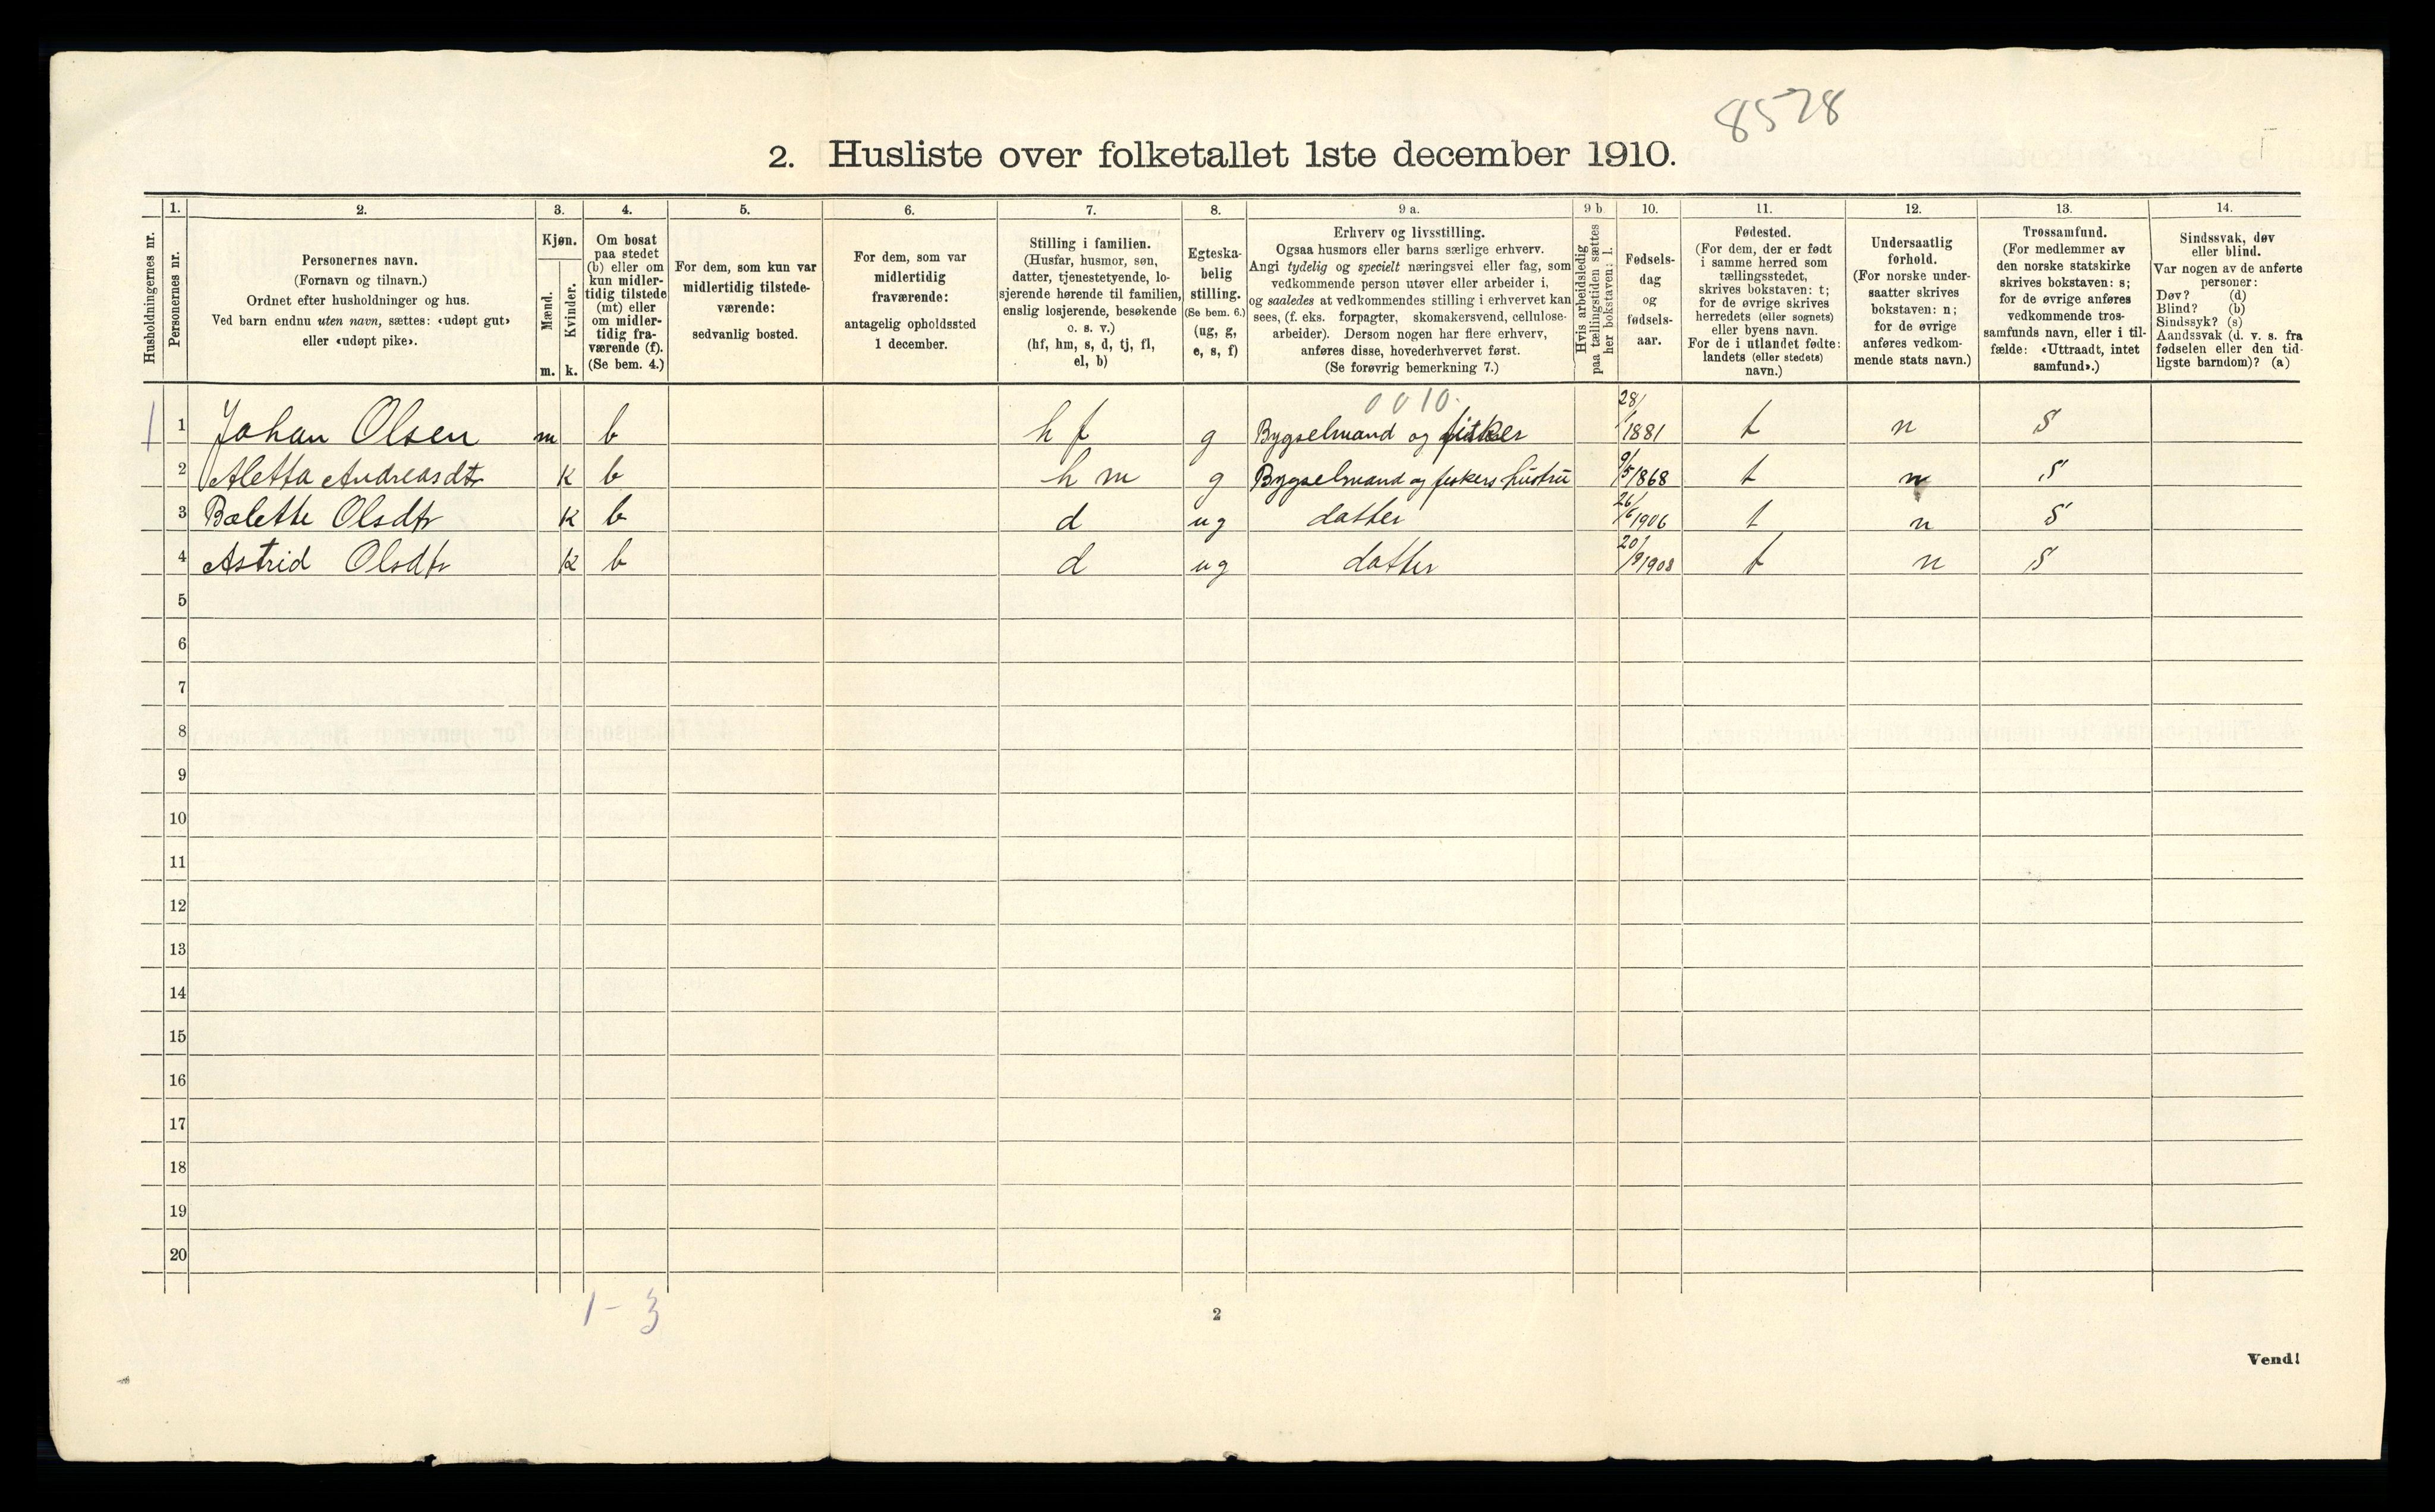 8578
2. Husliste over folketallet 1ste december 1910.
Husholdningernes nr.
1.
Personernes nr.
2.
Personernes navn.
(Fornavn og tilnavn.)
Ordnet efter husholdninger og hus.
Ved barn endnu uten navn, sættes: «udøpt gut»
eller «udøpt pike».
3.
Kjøn.
Mænd.
Kvinder.
m. k.
4.
Om bosat
paa stedet
(b) eller om
kun midler-
tidig tilstede
(mt) eller
om midler-
tidig fra-
værende (f).
(Se bem. 4.)
5.
For dem, som kun var
midlertidig tilstede-
værende:
sedvanlig bosted.
6.
For dem, som var
midlertidig
fraværende:
antagelig opholdssted
1 december.
7.
Stilling i familien.
(Husfar, husmor, søn,
datter, tjenestetyende, lo-
sjerende hørende til familien,
enslig losjerende, besøkende
o. s. v.)
(hf, hm, s, d, tj, fl,
el, b)
8.
Egteska-
belig
stilling.
(Se bem. 6.)
(ug, g,
e, s, f)
9 a.
Erhverv og livsstilling.
Ogsaa husmors eller barns særlige erhverv.
Angi tydelig og specielt næringsvei eller fag, som
vedkommende person utøver eller arbeider i,
og saaledes at vedkommendes stilling i erhvervet kan
sees, (f. eks. forpagter, skomakersvend, cellulose-
arbeider). Dersom nogen har flere erhverv,
anføres disse, hovederhvervet først.
(Se forøvrig bemerkning 7.)
9 b
Hvis arbeidsledig
paa tællingstiden sættes
her bokstaven: l.
10.
Fødsels-
dag
og
fødsels-
aar.
11.
Fødested.
(For dem, der er født
i samme herred som
tællingsstedet,
skrives bokstaven: t;
for de øvrige skrives
herredets (eller sognets)
eller byens navn.
For de i utlandet fødte:
landets (eller stedets)
navn.)
12.
Undersaatlig
forhold.
(For norske under-
saatter skrives
bokstaven: n;
for de øvrige
anføres vedkom-
mende stats navn.)
13.
Trossamfund.
(For medlemmer av
den norske statskirke
skrives bokstaven: s;
for de øvrige anføres
vedkommende tros-
samfunds navn, eller i til-
fælde: «Uttraadt, intet
samfund».)
14.
Sindssvak, døv
eller blind.
Var nogen av de anførte
personer:
Døv? (d)
Blind? (b)
Sindssyk? (s)
Aandssvak (d. v. s. fra
fødselen eller den tid-
ligste barndom)? (a)
0 0 10.
1 1 Johan Olsen m b h f g Bygselmand og fisker 28/1 1881 t n S
2 Aletta Andreasdtr K b h m g Bygselmand og fiskers hustru 9/5 1868 t n S
3 Bolette Olsdtr K b d ug datter 26/6 1906 t n S
4 Astrid Olsdtr K b d ug datter 20/9 1908 t n S
5
6
7
8
9
10
11
12
13
14
15
16
17
18
19
20
1 - 3
2
Vend!